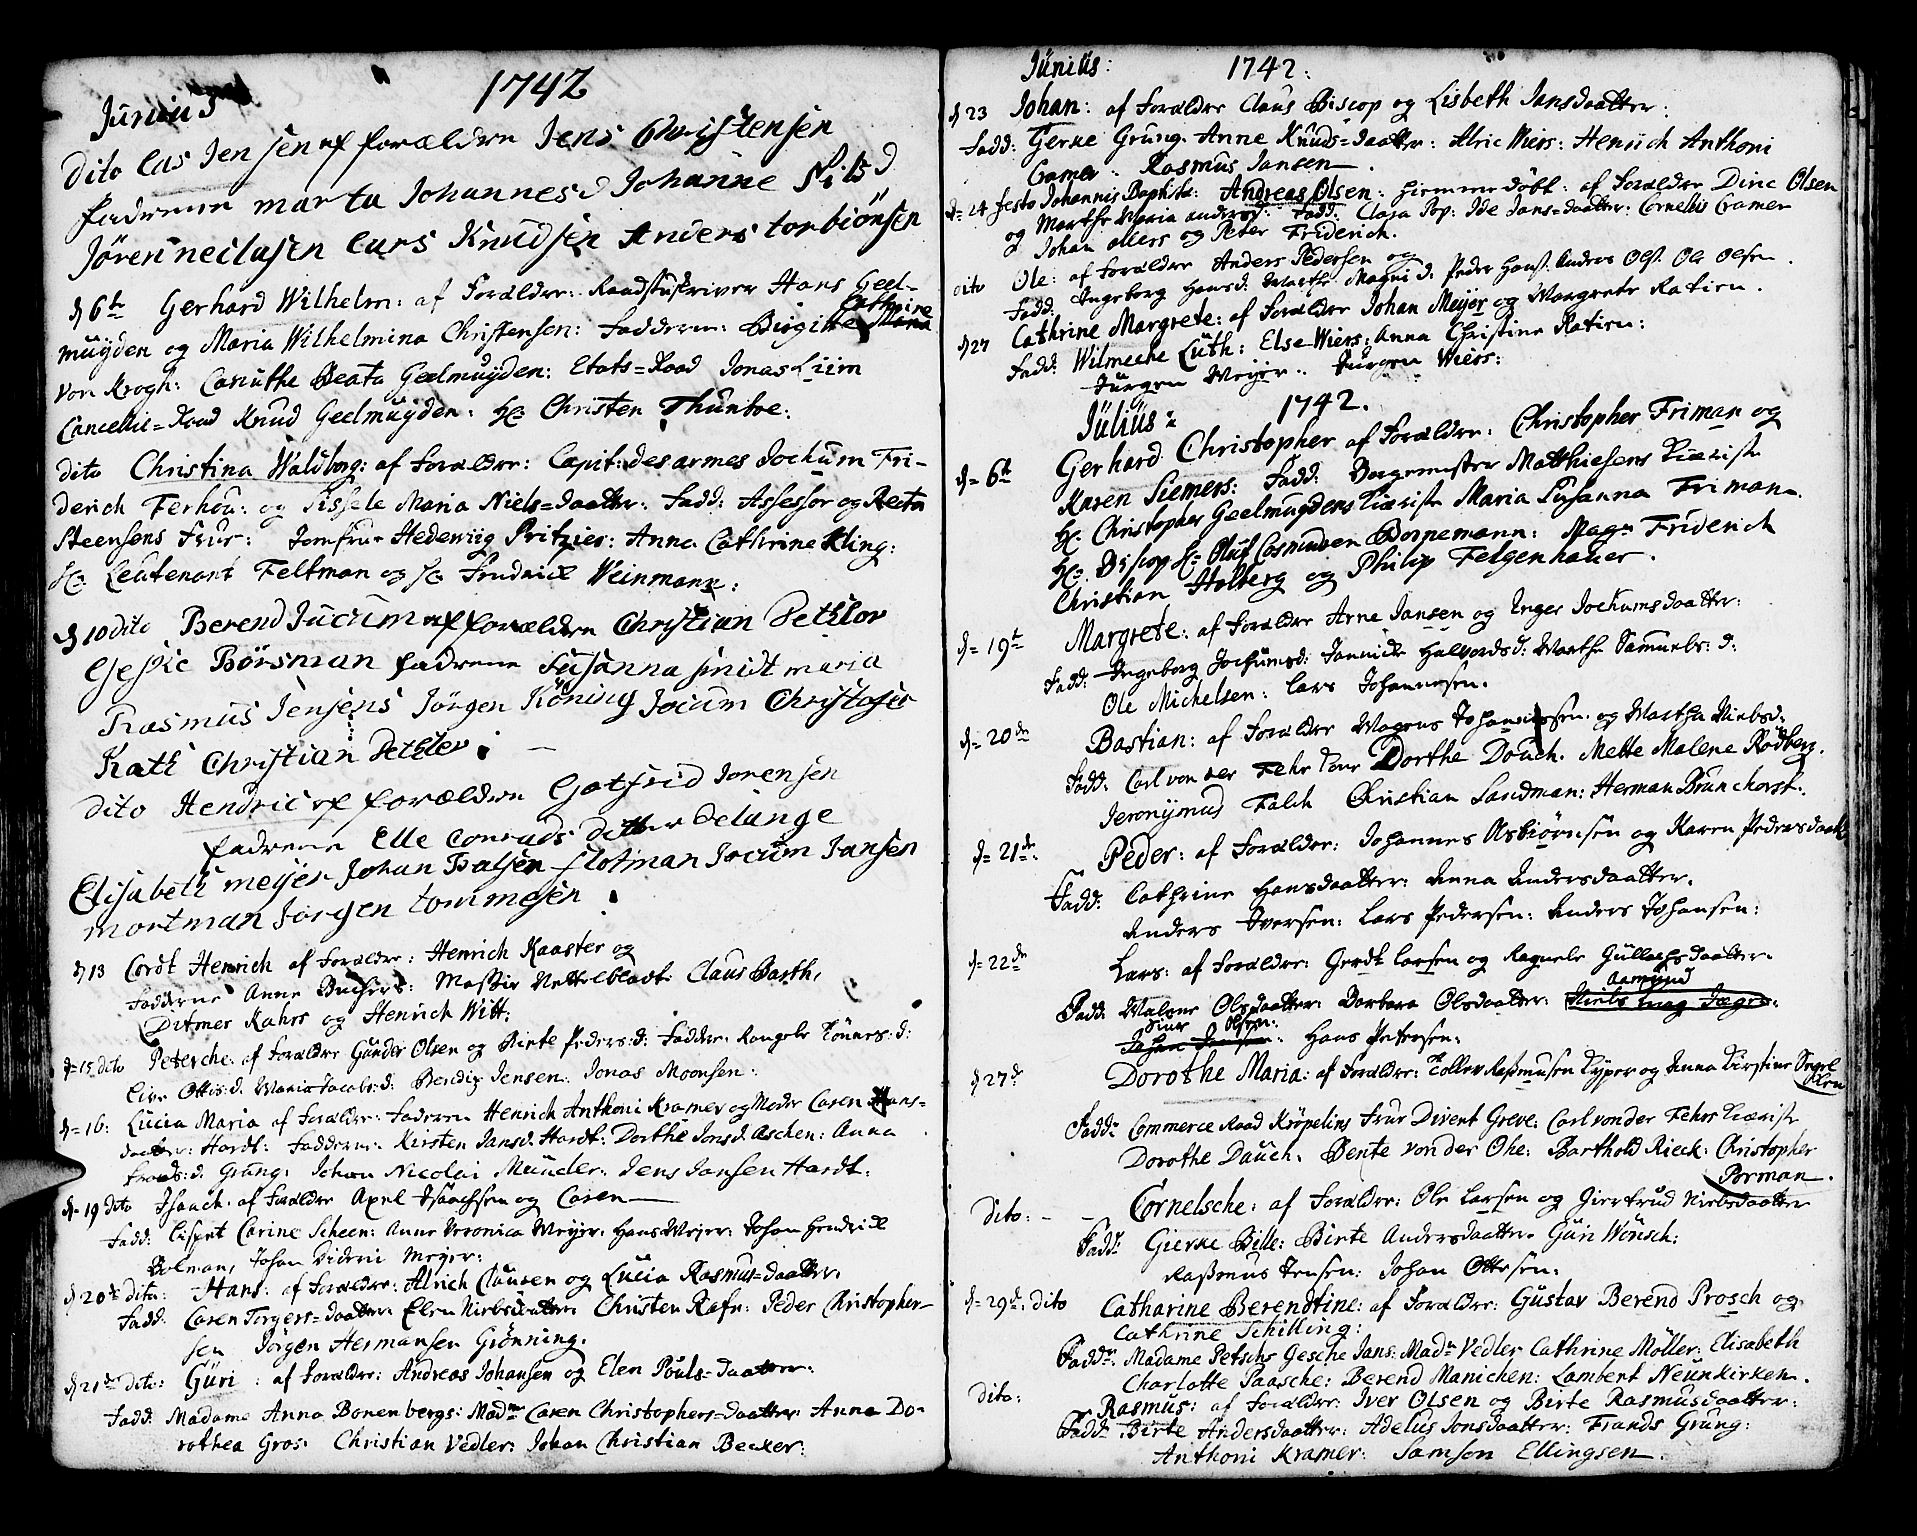 Junius 1742
dito Las Jensen af forældren Jens Christensen
fadrene marta Johannesd Johanne Nilsd
Jøren neilasen Lars Knudsen Anders torbiönsen
d 6te Gerhard Wilhelm: af Forældre: Raadstuskriver Hans Geel-
muÿden og Maria Wilhelmina Christensen: Fadderne: Birgitte Cathrine Maria
von Krogh: Canuthe Beata Geelmuyden: Etats=Raad Jonas Liim
Cancellie=Raad Knud Geelmuÿden: Hr: Christen Thunboe:
dito Christina Waldborg: af Forældre: Capit: des armes Jochum Fri-
derich Ferhou: og Sissele Maria Niels=daatter: Fadd: Assessor og
Steensens Frue: Jomfrue Hedewiig Pritzier: Anna Cathrine Kling:
Hr: Leutenant Feltman og Hr: Fridrick Weinmann:
d 10 dito Berend Jucum af forældren Christian Dethlov
Gesche Börsman fadrene Susanna smidt maria
Rasmus Jensens Jørgen Köning Jocum Christofer
Kath Christian Dethlev:
dito Hendric af forældren Gotfrid Jorensen
fadrene Elle Conrads ditter Delange
Elisabeth meyer Johan Balsen slotman Jocum Jansen
mortman Jörgen tommesen
d 13 Cordt Henrich af Forældre: Henrich Kaaster og
Fadderne Anne Buchers: Massie Nettelbladt: Claus Barth,
Ditmer Kahrs og Henrich Witt:
d=15 dito Peterche: af Forældre Gunder Olsen og Birte Peders:d: Fadder: Rangele Tönnes:d:
Live Ottis:d: Maria Jacobs:d: Bendix Jensen: Jonas Moonsen:
d=16: Lucia Maria af Forældre: Faderen Henrich Anthoni Kramer og Moder Caren Hans-
daatter: Hardt: Fadderne: Kirsten Jansd: Hardt: Dorthe Jonsd: Aschen: Anna
Frands:d: Grung: Johan Nicolai Münder: Jens Jansen Hardt:
d=19 dito Isaach: af Forældre Axel Isaachsen og Caren
Fadd: Lisbet Carine Scheen: Anne Veronica Meÿer: Hans Meÿer: Johan Hendrick
Bolman, Johan Dideric Meÿer:
d 20de dito: Hans: af Forældre: Alrich Clausen og Lucia Rasmus=daatter:
Fadd: Caren Torgers=daatter Elen Nielsdaatter Christen Rafn: Peder Christopher-
sen Jörgen Hermansen Grönning.
d 21de dito: Güri: af Forældre: Andreas Johansen og Elen Pouls=daatter:
Fadd: Madame Anna Bonenbergs: Madme Caren Christophers=daatter: Anna Do-
rothea Gros: Christian Vedler: Johan Christian Becker:
Junius: 1742:
d 23 Johan: af Forældre Claus Biscop og Lisbeth Jansdaatter:
Fadd: Gerke Grung. Anne Knuds=daatter: Alric Wiers: Henrich Anthoni
Cramer: Rasmus Jansen.
d=24 Festo Johannis Baptista: Andreas Olsen: hiemmedöbt: af Forældre Dine Olsen
og Marthe Maria Andersd: Fadd: Clara Pop: Ide Jans=daatter: Cornelius Cramer
Johan ollers og Peter Friderich.
dito Ole: af Forældre Anders Pedersen og
Fadd: Ingeborg Hansd: Marthe Magni d: Peder Hans: Anders Ols: Ole Olsen.
d 27 Cathrine Margrete: af Forældre Johan Meÿer og Margrete Katien.
Fadd: Wilmeche Lüth: Else Wiers: Anna Christina Katien:
Jürgen Meÿer: Jürgen Wiers:
Julius: 1742.
d=6te Gerhard Christopher af Forældre: Christopher Friman og
Karen Siemers: Fadd: Borgemester Matthiesens Kiæriste
Hr: Christopher Geelmuydens Kiæriste Maria Susanna Friman
Hr: Biscop Hr: Oluf Cosmusen Bornemann: Mag: Friderich
Christian Holberg og Philip Felgenhauer.
d=19te Margrete: af Forældre Arne Jansen og Inger Jochumsdaatter:
Fadd: Ingeborg Jochumsd: Jannicke Halvordsd: Marthe Samuels:d:
Ole Michelsen: Lars Johannesen.
d=20de Bastian: af Forældre Mogens Johannessen og Martha Nielsd:
Fadd: Carl von der Fehr Frue Dorthe Douch. Mette Malene Rödberg.
Jeronÿmus Falch Christian Sandman: Herman Brunchorst:
d=21de: Peder: af Forældre: Johannes Asbiörnsen og Karen Pedersdaatt
Fadd: Cathrine Hansdaatter: Anna Andersdaatter.
Anders Iversen: Lars Pedersen: Anders Johansen:
d=22de Lars: af Forældre: Gerdt Larsen og Ragnele Gullachsdaatter.
Aamund
Fadd: Malene Olsdaatter: Barbara Olsdaatter: Niels
Siur Olsen:
Johan Jansen: Hans Petersen:
d 27de Dorothe Maria: af Forældre: Tollev Rasmusen Kyper og Anna Kirstine Segel
cken
Fadd: Commerce Raad Kröpelins Frue Divent Greve: Carl von der Fehrs Kiæriste
Dorothe Dauch. Bente von der Ohe: Barthold Rieck: Christopher
Porman.
Dito: Cornelsche: af Forældre: Ole Larsen og Giertrud Nielsdaatter
Fadd: Gierke Bille: Birte Andersdaatter. Güri Wönsch:
Rasmus Jensen: Johan Ottesen:
d=29de: dito Catharine Berendtine: af Forældre: Güstav Berend Prosch og
Cathrine Schilling:
Faddr: Madame Petschs Gesche Jans: Madm Vedler Cathrine Möller: Elisabeth
Charlotte Paasche: Berend Manichen: Lambert Neünkirken.
dito: Rasmus: af Forældre: Iver Olsen og Birte Rasmusdaatter:
Fadd: Birte Andersdaatter: Adelus Jonsdaatter: Frands Grung:
Anthoni Kramer: Samson Ellingsen.